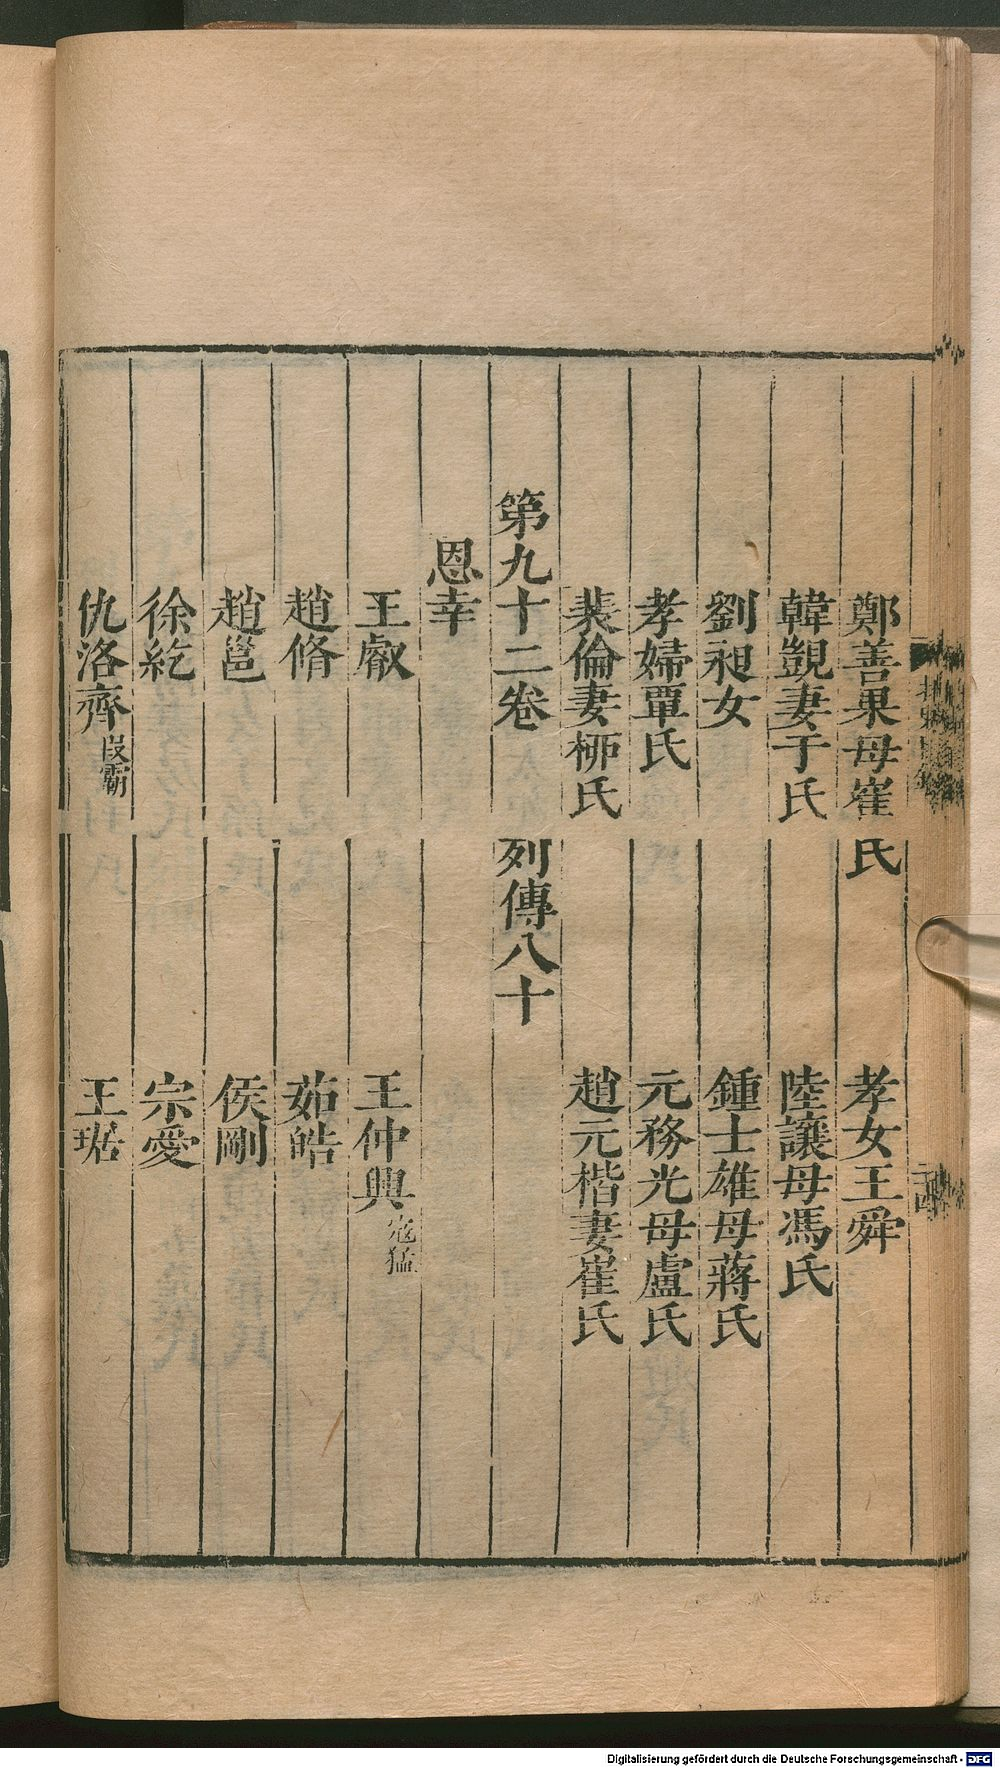 鄭善果母崔氏　孝女王舜
韓覬妻于氏　陸讓母馮氏
劉昶女　鍾士雄母蔣氏
孝婦覃氏　元務光母盧氏
裴倫妻柳氏　趙元楷妻崔氏
第九十二卷　列傳八十
恩幸
王叡　王仲興寇猛
趙脩　茹皓
趙邕　侯剛
徐紇　宗愛
仇洛齊段霸　王琚
Digitalisierung gefördert durch die Deutsche Forschungsgemeinschaft - DFG